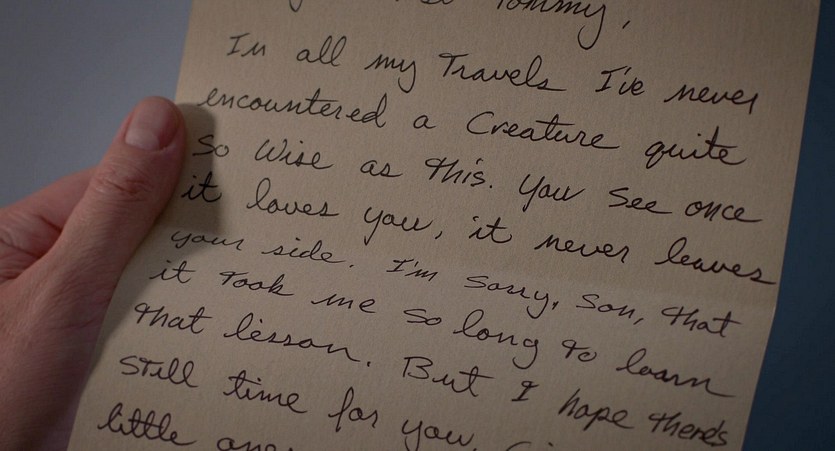 Tommy,
In all my Travels I've never
encountered a Creature quite
So Wise as this. You See once
it loves you, it never leaves
your side. I'm Sorry, Son, that
it took me so long to learn
that lesson. But I hope there's
Still time for you.
little one